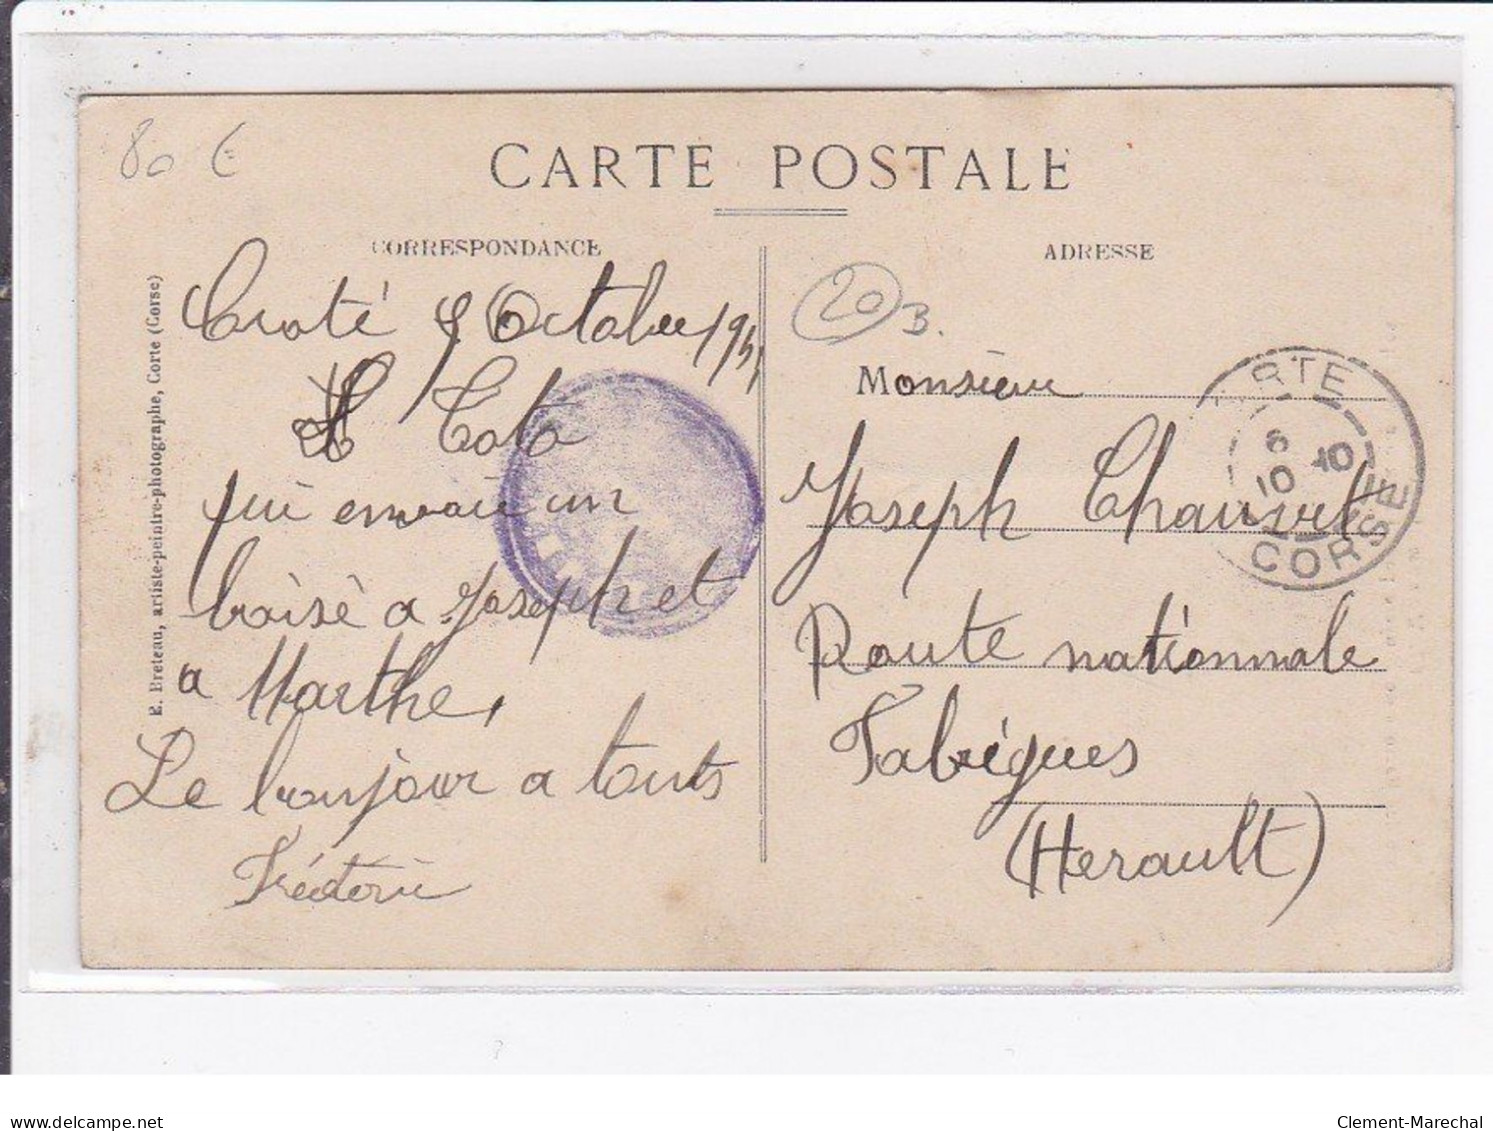 80 €
CARTE POSTALE
CORRESPONDANCE
ADRESSE
E. Breteau, artiste-peintre-photographe, Corte (Corse)
Octobre
Toto
qui envoie un
baisè a Joseph et
a Marthe,
Le bonjour a touts
Fréderic
20 B.
Monsieur
Joseph Chauvet
Route nationnale
Fabrégues
(Herault)
RTE
6
10 10
CORSE
www.delcampe.net
Clement-Marechal